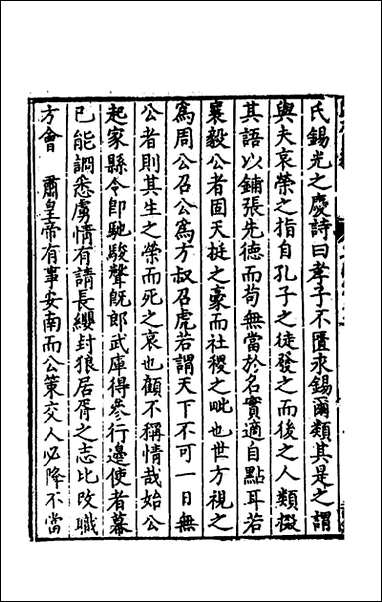 氏錫光之慶詩曰孝子不匱永錫爾類其是之謂
與夫哀榮之指自孔子之徒發之而後之人類掇
其語以鋪張先德而苟無當於名實適自點耳若
襄毅公者固天挺之豪而社稷之毗也世方視之
為周公召公為方叔召虎若謂天下不可一日無
公者則其生之榮而死之哀也顧不稱情哉始公
起家縣令即馳駿聲既郎武庫得參行邊使者幕
已能調悉虜情有請長纓封狼居胥之志比改職
方會　肅皇帝有事安南而公策交人必降不當